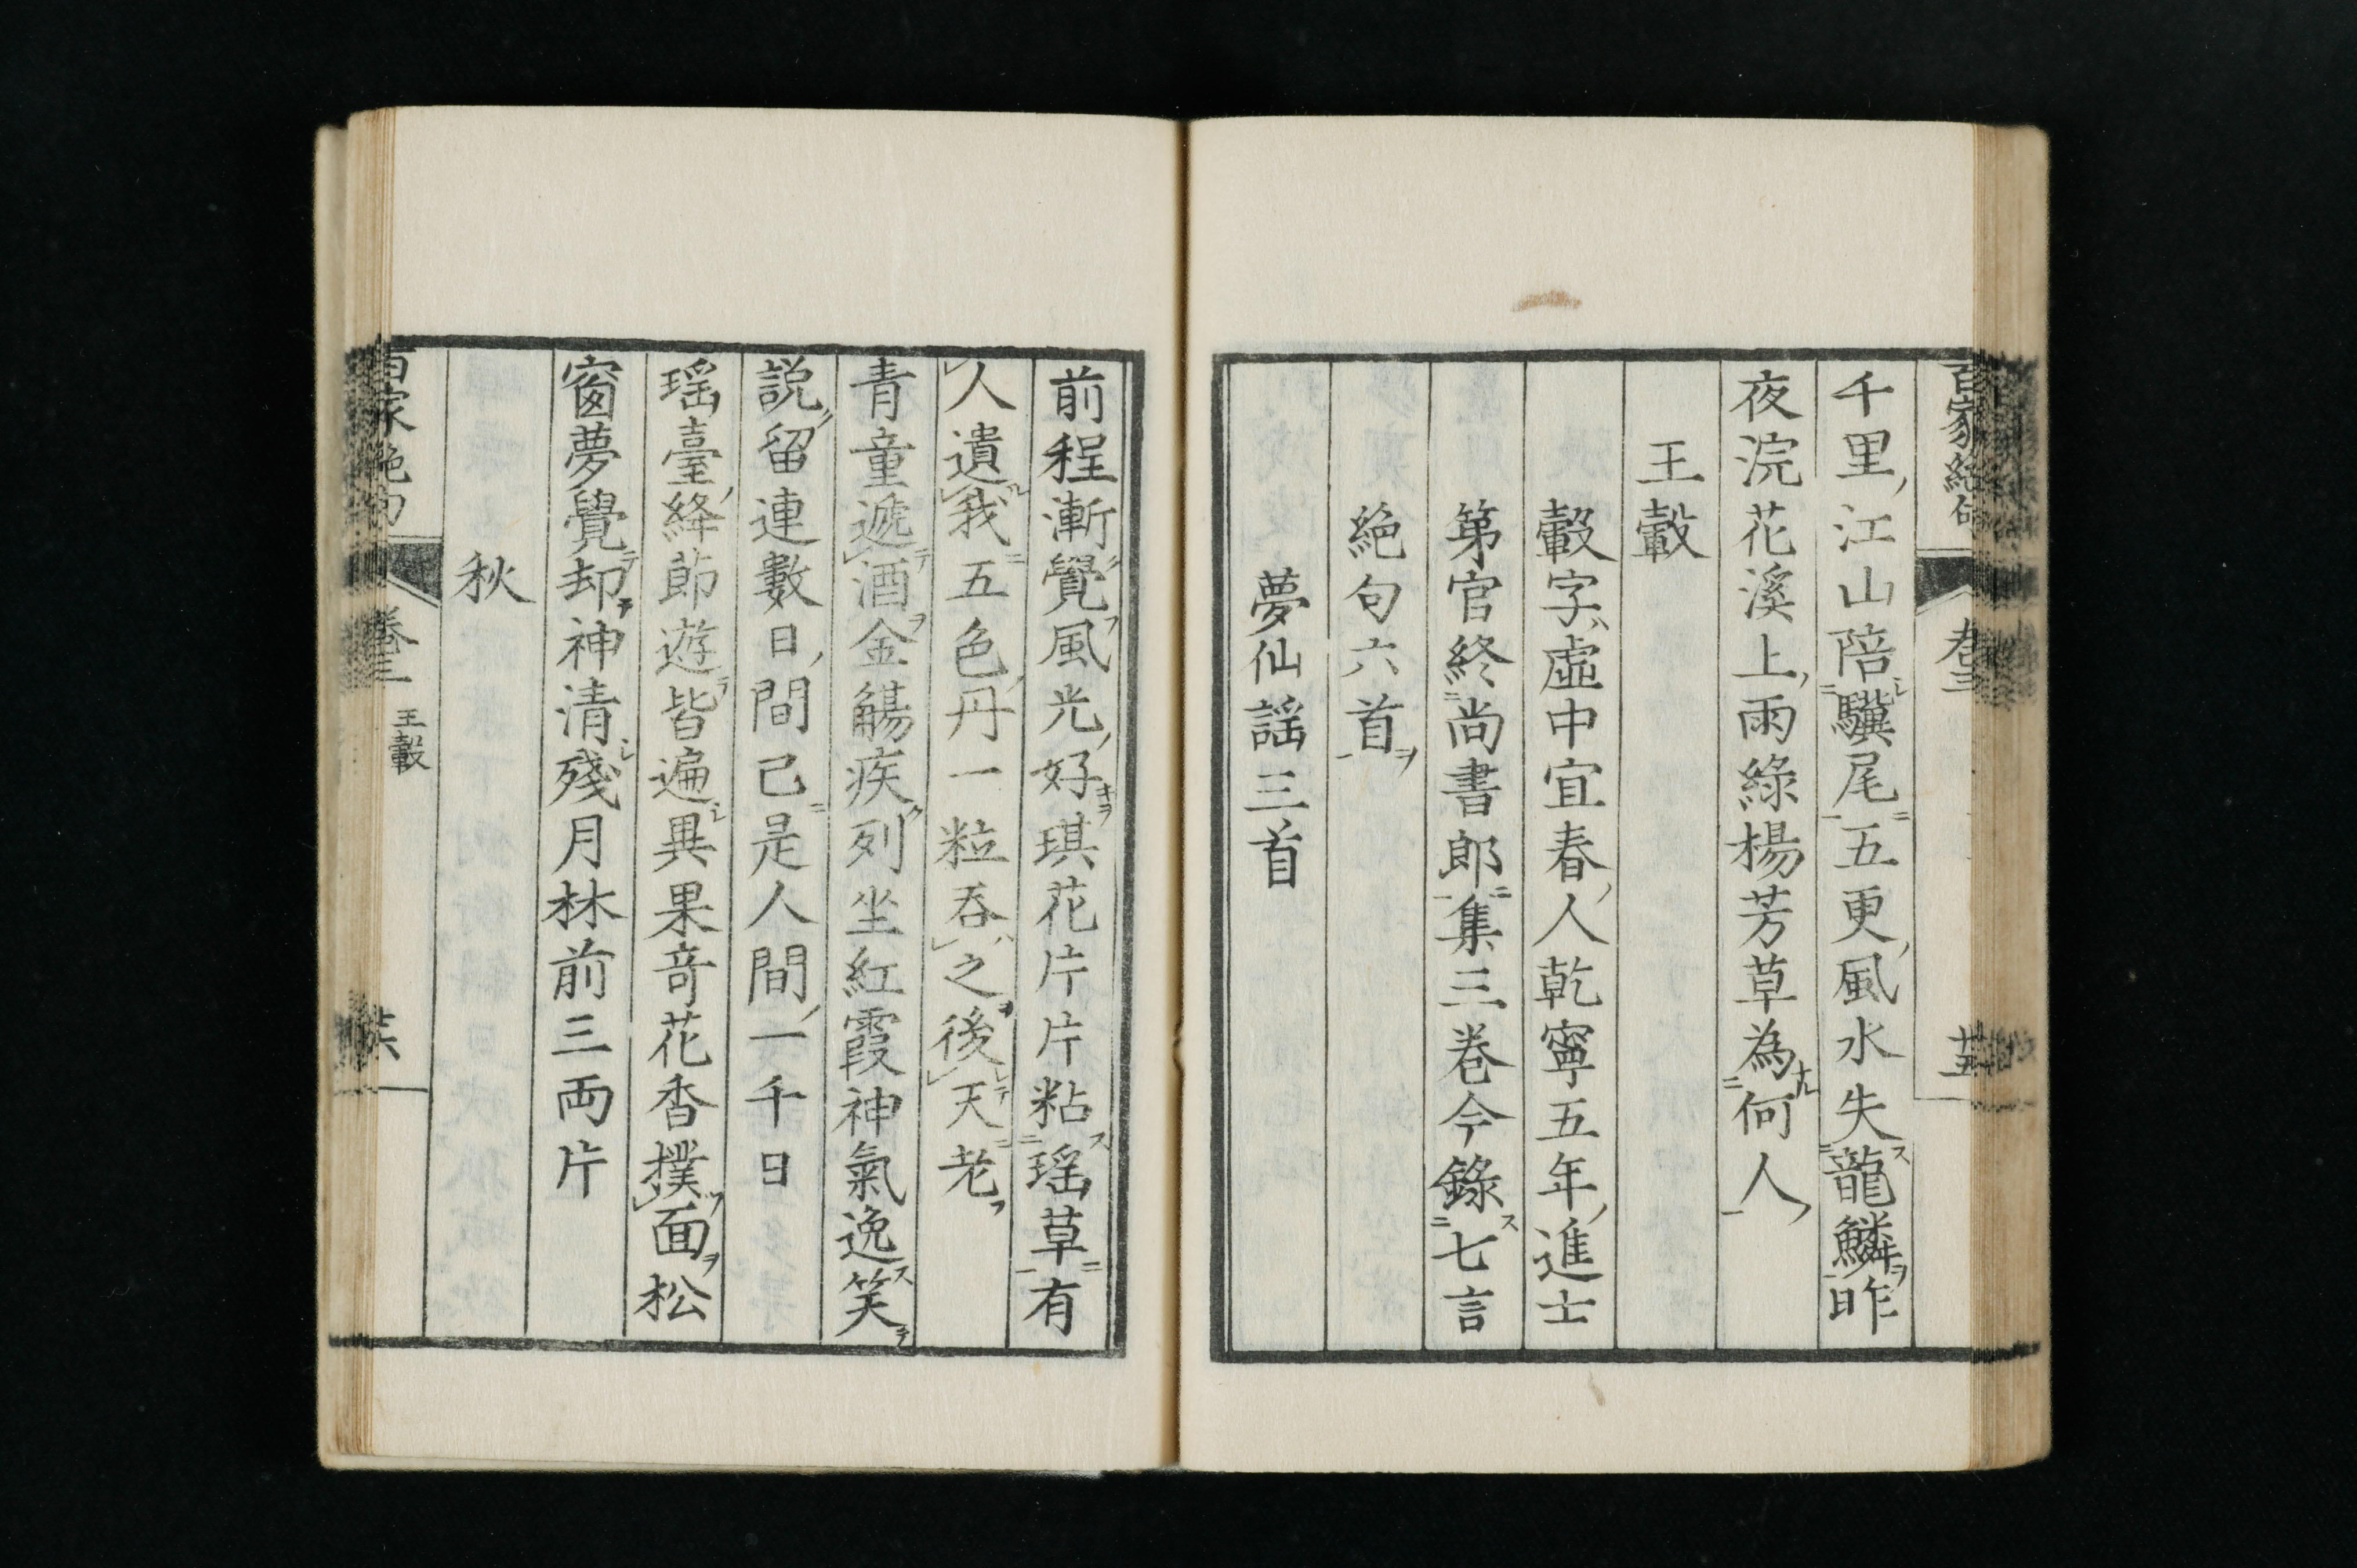 百家絶句 巻三 十五
千里江山陪驥尾五更風水失龍鱗昨
夜浣花溪上雨綠楊芳草為何人
王轂
轂字虛中宜春人乾寧五年進士
第官終尚書郎集三巻今錄七言
絶句六首
夢仙謡三首
前程漸覺風光好琪花片片粘瑶草有
人遺我五色丹一粒吞之後天老
青童遞酒金觴疾列坐紅霞神氣逸笑
説留連數日間已是人間一千日
瑶臺絳節遊皆遍異果竒花香撲面松
窗夢覺却神清殘月林前三両片
秋
百家絶句 巻三 王轂